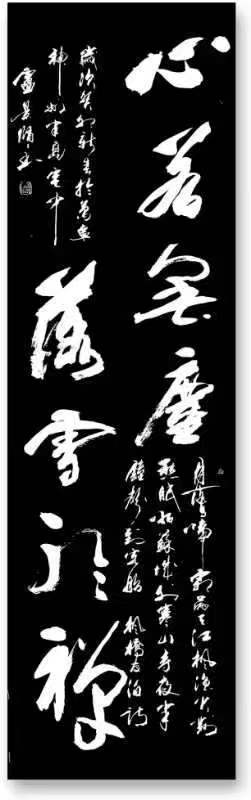 心若無塵
月落烏啼霜滿天江楓漁火對
愁眠姑蘇城外寒山寺夜半
鐘聲到客船 楓橋夜泊詩
落雪聽禪
歲次癸卯新春於